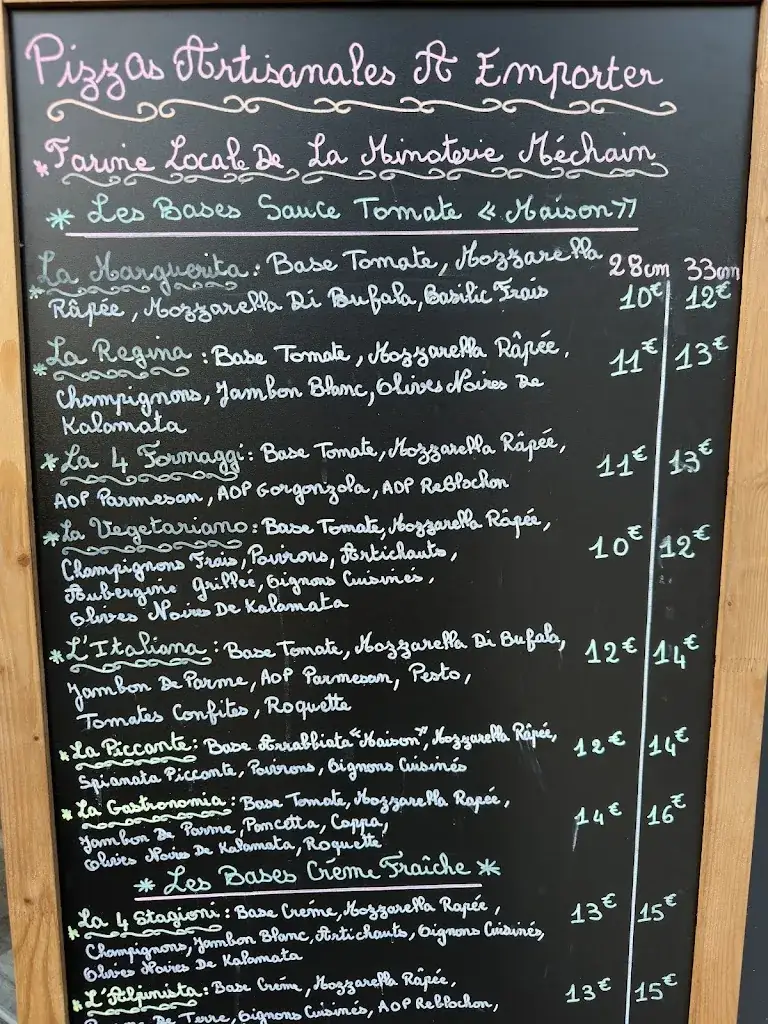 Pizzas Artisanales A Emporter
*Farine Locale De La Minoterie Méchain
* Les Bases Sauce Tomate « Maison »
28cm 33cm
*La Marguerita : Base Tomate, Mozzarella
Râpée, Mozzarella Di Bufala, Basilic Frais 10€ 12€
*La Regina : Base Tomate, Mozzarella Râpée, 11€ 13€
Champignons, Jambon Blanc, Olives Noires De
Kalamata
*La 4 Formaggi : Base Tomate, Mozzarella Râpée, 11€ 13€
AOP Parmesan, AOP Gorgonzola, AOP Reblochon
*La Vegetariano : Base Tomate, Mozzarella Râpée, 10€ 12€
Champignons Frais, Poivrons, Artichauts,
Aubergine Grillée, Oignons Cuisinés,
Olives Noires De Kalamata
*L'Italiana : Base Tomate, Mozzarella Di Bufala, 12€ 14€
Jambon De Parme, AOP Parmesan, Pesto,
Tomates Confites, Roquette
*La Piccante : Base Arrabbiata "Maison", Mozzarella Râpée, 12€ 14€
Spianata Piccante, Poivrons, Oignons Cuisinés
*La Gastronomia : Base Tomate, Mozzarella Rapée, 14€ 16€
Jambon De Parme, Pancetta, Coppa,
Olives Noires De Kalamata, Roquette
* Les Bases Crème Fraîche *
*La 4 Stagioni : Base Crème, Mozzarella Rapée, 13€ 15€
Champignons, Jambon Blanc, Artichauts, Oignons Cuisinés,
Olives Noires De Kalamata
*L'Alpinista : Base Crème, Mozzarella Râpée, 13€ 15€
De Terre, Oignons Cuisinés, AOP Reblochon,